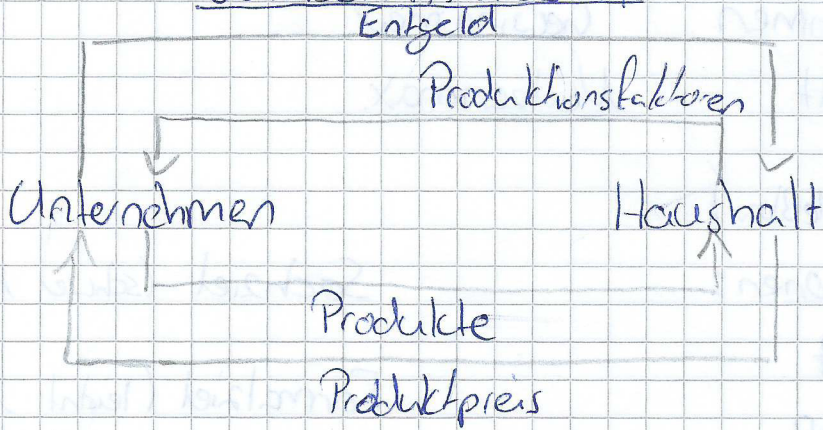 Entgeld
Produktionsfaktoren
Unternehmen Haushalt
Produkte
Produktpreis